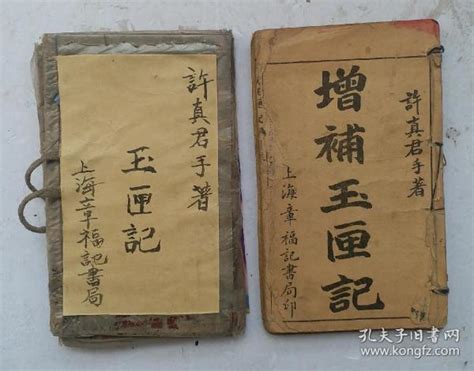 許真君手著
玉匣記
上海章福記書局
許真君手著
增補玉匣記
上海章福記書局印
孔夫子旧书网
www.kongfz.com